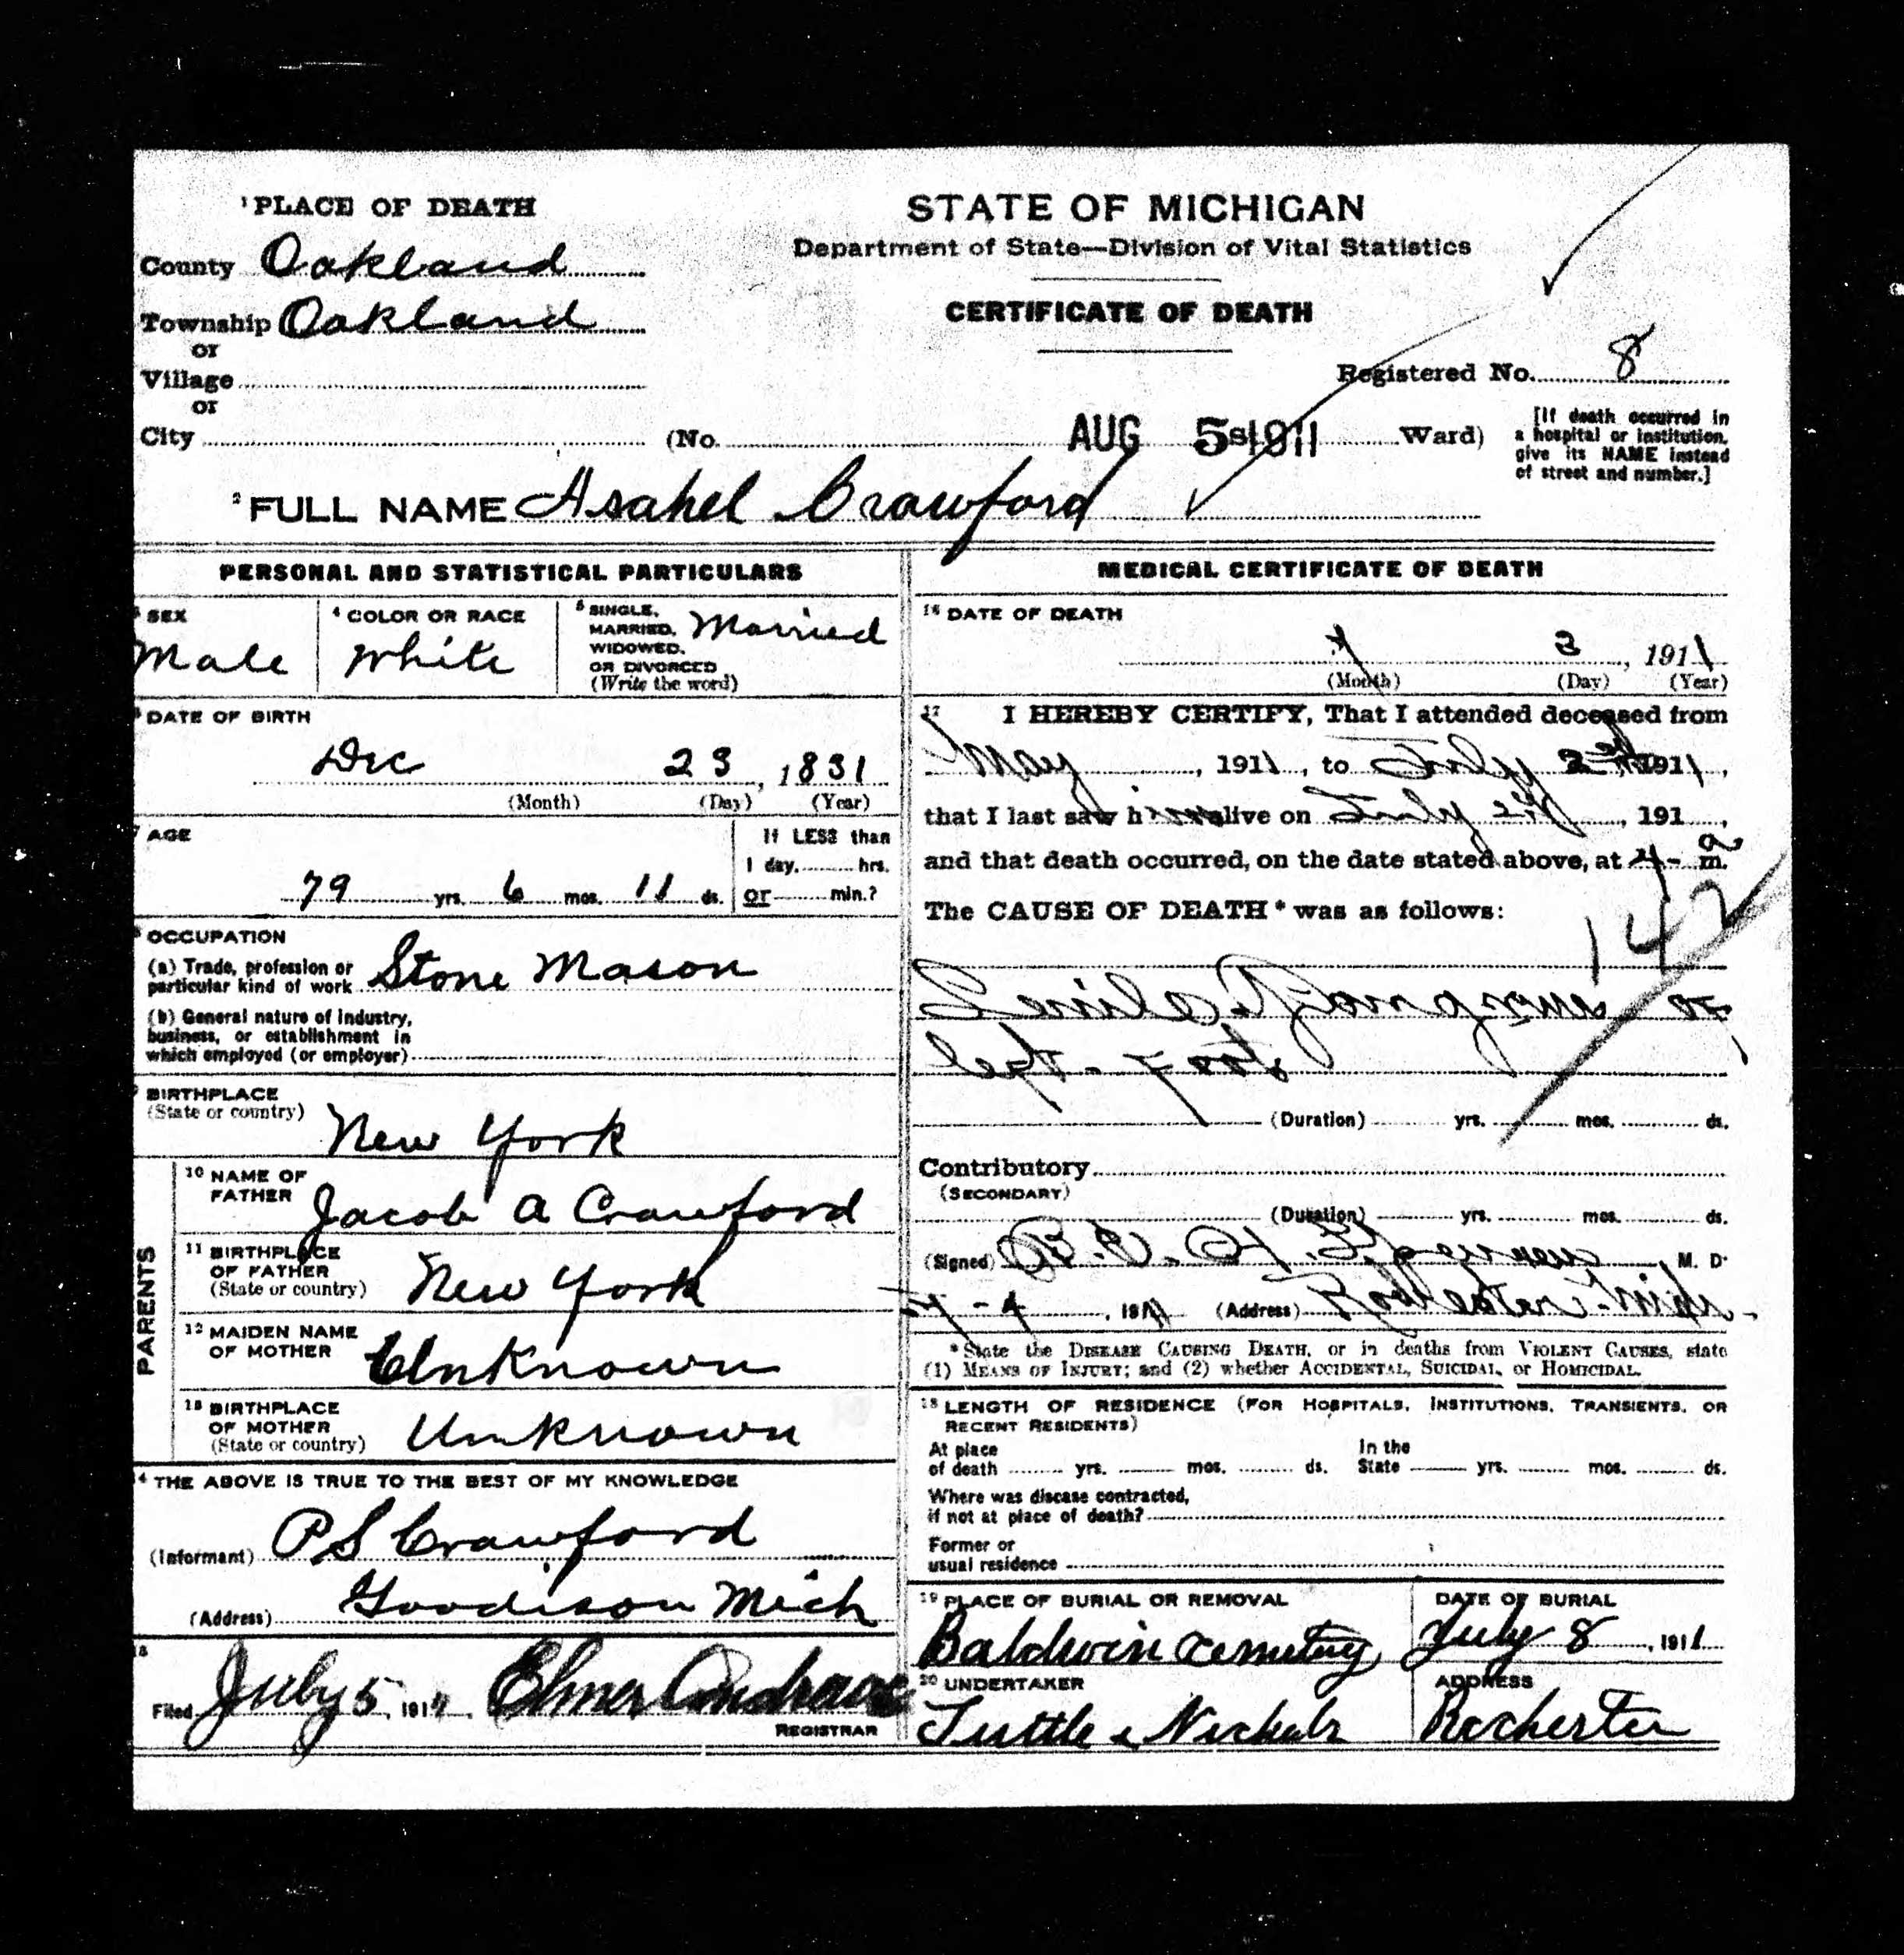 ¹PLACE OF DEATH
County Oakland
Township Oakland
or
Village
or
City
STATE OF MICHIGAN
Department of State—Division of Vital Statistics
CERTIFICATE OF DEATH
Registered No. 8
(No. AUG 5 1911 Ward)
[If death occurred in
a hospital or institution,
give its NAME instead
of street and number.]
²FULL NAME Asahel Crawford
PERSONAL AND STATISTICAL PARTICULARS
³ SEX
Male
⁴ COLOR OR RACE
White
⁵ SINGLE,
MARRIED,
WIDOWED,
OR DIVORCED
(Write the word)
Married
⁶ DATE OF BIRTH
Dec 23, 1831
(Month) (Day) (Year)
⁷ AGE
79 yrs. 6 mos. 11 ds.
If LESS than
1 day, hrs.
or min.?
⁸ OCCUPATION
(a) Trade, profession or
particular kind of work Stone Mason
(b) General nature of industry,
business, or establishment in
which employed (or employer)
⁹ BIRTHPLACE
(State or country)
New York
PARENTS
¹⁰ NAME OF
FATHER Jacob A Crawford
¹¹ BIRTHPLACE
OF FATHER
(State or country) New York
¹² MAIDEN NAME
OF MOTHER Unknown
¹³ BIRTHPLACE
OF MOTHER
(State or country) Unknown
¹⁴ THE ABOVE IS TRUE TO THE BEST OF MY KNOWLEDGE
(Informant) P S Crawford
(Address) Goodison Mich
¹⁵
Filed July 5, 1911, Elmer
REGISTRAR
MEDICAL CERTIFICATE OF DEATH
¹⁶ DATE OF DEATH
7 3, 1911
(Month) (Day) (Year)
¹⁷ I HEREBY CERTIFY, That I attended deceased from
May, 1911, to July 1911,
that I last saw him alive on July, 191,
and that death occurred, on the date stated above, at 4- a m.
The CAUSE OF DEATH* was as follows:
142
Senile Gangrene of
foot - leg
(Duration) yrs. mos. ds.
Contributory
(SECONDARY)
(Duration) yrs. mos. ds.
(Signed) M. D.
7-4, 1911 (Address) Rochester Mich
*State the DISEASE CAUSING DEATH, or in deaths from VIOLENT CAUSES, state
(1) MEANS OF INJURY; and (2) whether ACCIDENTAL, SUICIDAL, or HOMICIDAL.
¹⁸ LENGTH OF RESIDENCE (FOR HOSPITALS, INSTITUTIONS, TRANSIENTS, OR
RECENT RESIDENTS)
At place
of death yrs. mos. ds.
In the
State yrs. mos. ds.
Where was disease contracted,
if not at place of death?
Former or
usual residence
¹⁹ PLACE OF BURIAL OR REMOVAL
Baldwin Cemetery
DATE OF BURIAL
July 8, 1911
²⁰ UNDERTAKER
Tuttle & Nichols
ADDRESS
Rochester